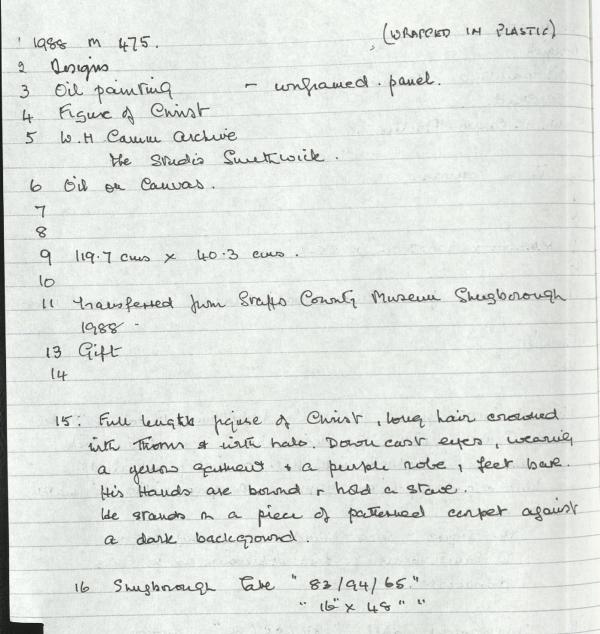 1 1988 M 475. (WRAPPED IN PLASTIC)
2 Designs
3 Oil painting - unframed panel.
4 Figure of Christ
5 W.H Camm archive
the Studio Smethwick.
6 Oil on Canvas.
7
8
9 119.7 cms x 40.3 cms.
10
11 transferred from Staffs County Museum Shugborough
1988
13 Gift
14
15: Full length figure of Christ, long hair crowned
with thorns & with halo. Down cast eyes, wearing
a yellow garment & a purple robe, feet bare.
His Hands are bound & hold a stave.
He stands on a piece of patterned carpet against
a dark background.
16 Shugborough " 83/94/65."
" 16" x 48" "